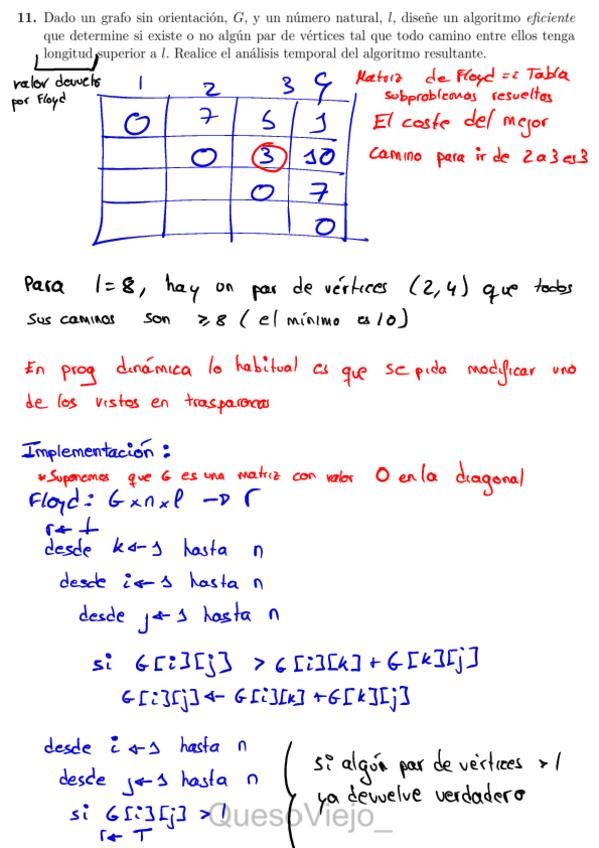 11. Dado un grafo sin orientación, G, y un número natural, l, diseñe un algoritmo eficiente
que determine si existe o no algún par de vértices tal que todo camino entre ellos tenga
longitud superior a l. Realice el análisis temporal del algoritmo resultante.
valor devuelto
por Floyd
1 2 3 4
0 7 5 1
0 3 10
0 7
0
Matriz de Floyd =: Tabla
subproblemas resueltos
El coste del mejor
camino para ir de 2 a 3 es 3
Para l=8, hay un par de vértices (2,4) que todos
sus caminos son ≥8 (el mínimo es 10)
En prog dinámica lo habitual es que se pida modificar uno
de los vistos en trasparencias
Implementación:
*Suponemos que G es una matriz con valor 0 en la diagonal
Floyd: G x n x l → r
r ← ⊥
desde k ← 1 hasta n
desde i ← 1 hasta n
desde j ← 1 hasta n
si G[i][j] > G[i][k] + G[k][j]
G[i][j] ← G[i][k] + G[k][j]
desde i ← 1 hasta n
desde j ← 1 hasta n
si G[i][j] > l
r ← T
si algún par de vértices > l
ya devuelve verdadero
QuesoViejo_